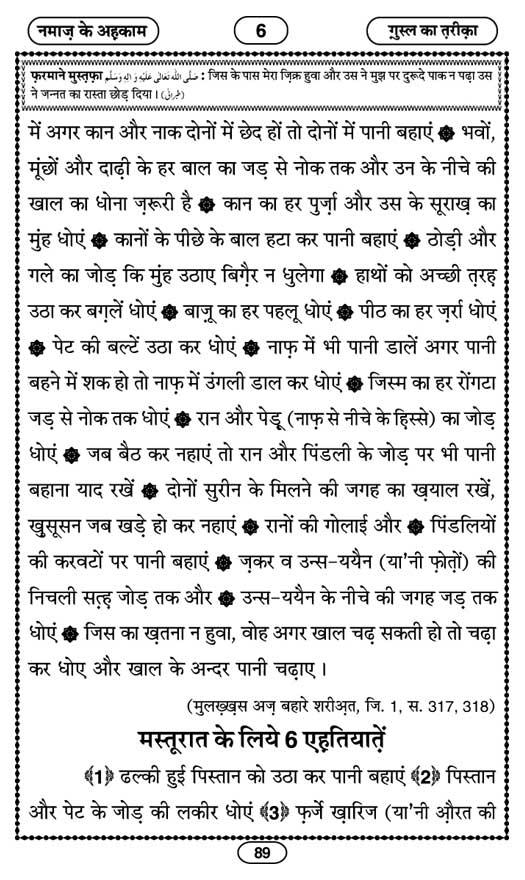 नमाज़ के अहकाम
6
ग़ुस्ल का त़रीक़ा
फ़रमाने मुस्त़फ़ा صَلَّى اللهُ تَعَالٰى عَلَيْهِ وَاٰلِهٖ وَسَلَّم : जिस के पास मेरा ज़िक्र हुवा और उस ने मुझ पर दुरूदे पाक न पढ़ा उस
ने जन्नत का रास्ता छोड़ दिया। (طبرانی)
में अगर कान और नाक दोनों में छेद हों तो दोनों में पानी बहाएं ۞ भवों,
मूंछों और दाढ़ी के हर बाल का जड़ से नोक तक और उन के नीचे की
खाल का धोना ज़रूरी है ۞ कान का हर पुर्ज़ा और उस के सूराख़ का
मुंह धोएं ۞ कानों के पीछे के बाल हटा कर पानी बहाएं ۞ ठोड़ी और
गले का जोड़ कि मुंह उठाए बिग़ैर न धुलेगा ۞ हाथों को अच्छी त़रह़
उठा कर बग़लें धोएं ۞ बाज़ू का हर पहलू धोएं ۞ पीठ का हर ज़र्रा धोएं
۞ पेट की बल्टें उठा कर धोएं ۞ नाफ़ में भी पानी डालें अगर पानी
बहने में शक हो तो नाफ़ में उंगली डाल कर धोएं ۞ जिस्म का हर रोंगटा
जड़ से नोक तक धोएं ۞ रान और पेड़ू (नाफ़ से नीचे के हि़स्से) का जोड़
धोएं ۞ जब बैठ कर नहाएं तो रान और पिंडली के जोड़ पर भी पानी
बहाना याद रखें ۞ दोनों सुरीन के मिलने की जगह का ख़याल रखें,
ख़ुसूसन जब खड़े हो कर नहाएं ۞ रानों की गोलाई और ۞ पिंडलियों
की करवटों पर पानी बहाएं ۞ ज़कर व उन्स-ययैन (या'नी फ़ोतों) की
निचली सत़्ह़ जोड़ तक और ۞ उन्स-ययैन के नीचे की जगह जड़ तक
धोएं ۞ जिस का ख़तना न हुवा, वोह अगर खाल चढ़ सकती हो तो चढ़ा
कर धोए और खाल के अन्दर पानी चढ़ाए।
(मुलख़्ख़स अज़ बहारे शरीअ़त, जि. 1, स. 317, 318)
मस्तूरात के लिये 6 एह़तियात़ें
﴾1﴿ ढल्की हुई पिस्तान को उठा कर पानी बहाएं ﴾2﴿ पिस्तान
और पेट के जोड़ की लकीर धोएं ﴾3﴿ फ़र्जे ख़ारिज (या'नी औ़रत की
89